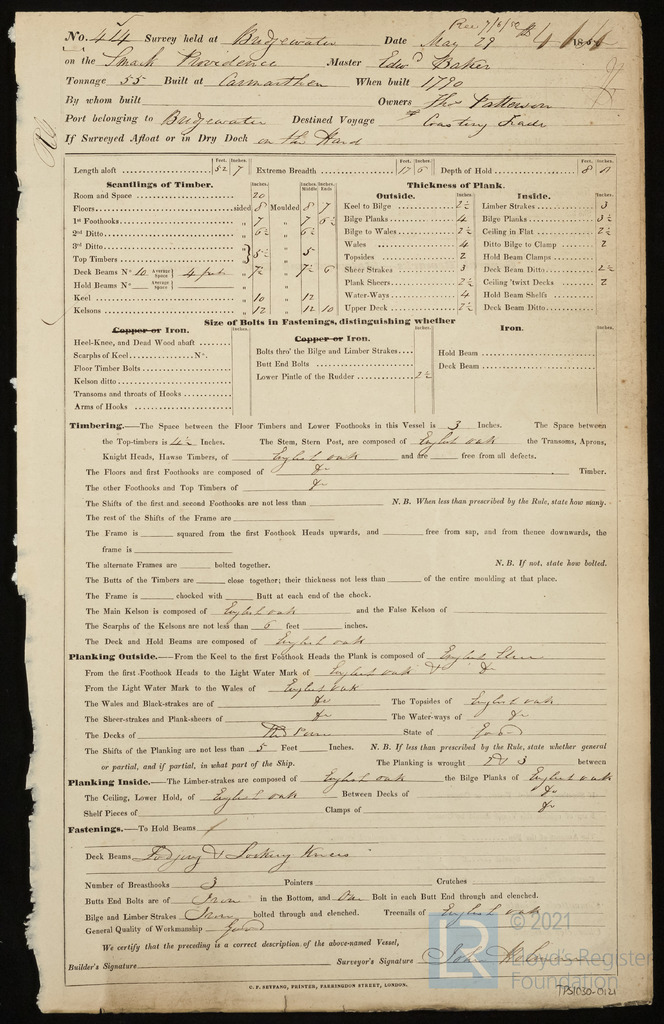 Rec 7/6/50
No. 414 Survey held at Bridgewater Date May 29 18
on the Smack Providence Master Edwd Baker
Tonnage 55 Built at Carmarthen When built 1790
By whom built Owners Thos Patterson
Port belonging to Bridgewater Destined Voyage Coasting Trade
If Surveyed Afloat or in Dry Dock on the Hard
Feet. Inches. Feet. Inches. Feet. Inches.
Length aloft 52 7 Extreme Breadth 17 6 Depth of Hold 8
Scantlings of Timber.
Inches. Inches Middle Inches Ends
Room and Space 20
Floors sided 8 Moulded 8 7
1st Foothooks „ 7 „ 7 6
2nd Ditto „ 6½ „ 6½
3rd Ditto
Top Timbers „ 5½ „ 5
Deck Beams No. 10 Average Space 4 feet „ 7½ „ 7½ 6
Hold Beams No. Average Space „ „
Keel „ 10 „ 12
Kelsons „ 12 „ 12 10
Thickness of Plank.
Outside. Inches.
Keel to Bilge 2½
Bilge Planks 4
Bilge to Wales 2½
Wales 4
Topsides 2
Sheer Strakes 3
Plank Sheers 2½
Water-Ways 4
Upper Deck 2½
Inside. Inches.
Limber Strakes 3
Bilge Planks 3½
Ceiling in Flat 2½
Ditto Bilge to Clamp 2
Hold Beam Clamps
Deck Beam Ditto 2½
Ceiling 'twixt Decks 2
Hold Beam Shelfs
Deck Beam Ditto
Size of Bolts in Fastenings, distinguishing whether
Copper or Iron. Inches.
Heel-Knee, and Dead Wood abaft
Scarphs of Keel No.
Floor Timber Bolts
Kelson ditto
Transoms and throats of Hooks
Arms of Hooks
Copper or Iron. Inches.
Bolts thro' the Bilge and Limber Strakes
Butt End Bolts
Lower Pintle of the Rudder 2½
Iron. Inches.
Hold Beam
Deck Beam
Timbering.—The Space between the Floor Timbers and Lower Foothooks in this Vessel is 3 Inches. The Space between
the Top-timbers is 4½ Inches. The Stem, Stern Post, are composed of English oak the Transoms, Aprons,
Knight Heads, Hawse Timbers, of English oak and are free from all defects.
The Floors and first Foothooks are composed of Do Timber.
The other Foothooks and Top Timbers of Do
The Shifts of the first and second Foothooks are not less than N.B. When less than prescribed by the Rule, state how many.
The rest of the Shifts of the Frame are
The Frame is squared from the first Foothook Heads upwards, and free from sap, and from thence downwards, the
frame is
The alternate Frames are bolted together. N.B. If not, state how bolted.
The Butts of the Timbers are close together; their thickness not less than of the entire moulding at that place.
The Frame is chocked with Butt at each end of the chock.
The Main Kelson is composed of English oak and the False Kelson of
The Scarphs of the Kelsons are not less than 6 feet inches.
The Deck and Hold Beams are composed of English oak
Planking Outside.—From the Keel to the first Foothook Heads the Plank is composed of English Elm
From the first Foothook Heads to the Light Water Mark of English oak & Do
From the Light Water Mark to the Wales of English oak
The Wales and Black-strakes are of Do The Topsides of English oak
The Sheer-strakes and Plank-sheers of Do The Water-ways of Do
The Decks of State of Good
The Shifts of the Planking are not less than 5 Feet Inches. N.B. If less than prescribed by the Rule, state whether general
or partial, and if partial, in what part of the Ship. The Planking is wrought 3 between
Planking Inside.—The Limber-strakes are composed of English oak the Bilge Planks of English oak
The Ceiling, Lower Hold, of English oak Between Decks of Do
Shelf Pieces of Clamps of Do
Fastenings.—To Hold Beams
Deck Beams Lodging & Locking Knees
Number of Breasthooks 3 Pointers Crutches
Butts End Bolts are of Iron in the Bottom, and One Bolt in each Butt End through and clenched.
Bilge and Limber Strakes Iron bolted through and clenched. Treenails of English oak
General Quality of Workmanship Good
We certify that the preceding is a correct description of the above-named Vessel,
Builder's Signature Surveyor's Signature
C. F. SEYFANG, PRINTER, FARRINGDON STREET, LONDON.
LR
© 2021
Lloyd's Register
Foundation
TPS1030-0121